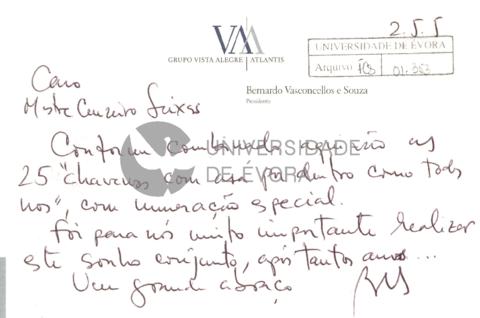 2.5.5
VAA
GRUPO VISTA ALEGRE | ATLANTIS
UNIVERSIDADE DE ÉVORA
Arquivo FCS 01.353
Bernardo Vasconcellos e Souza
Presidente
Caro
Mestre Cruzeiro Seixas
Conforme combinado seguirão as
25 "chavenas com asa por dentro como todos
nós", com numeração especial.
Foi para nós muito importante realizar
este sonho conjunto, após tantos anos...
Um grande abraço
UNIVERSIDADE
DE ÉVORA